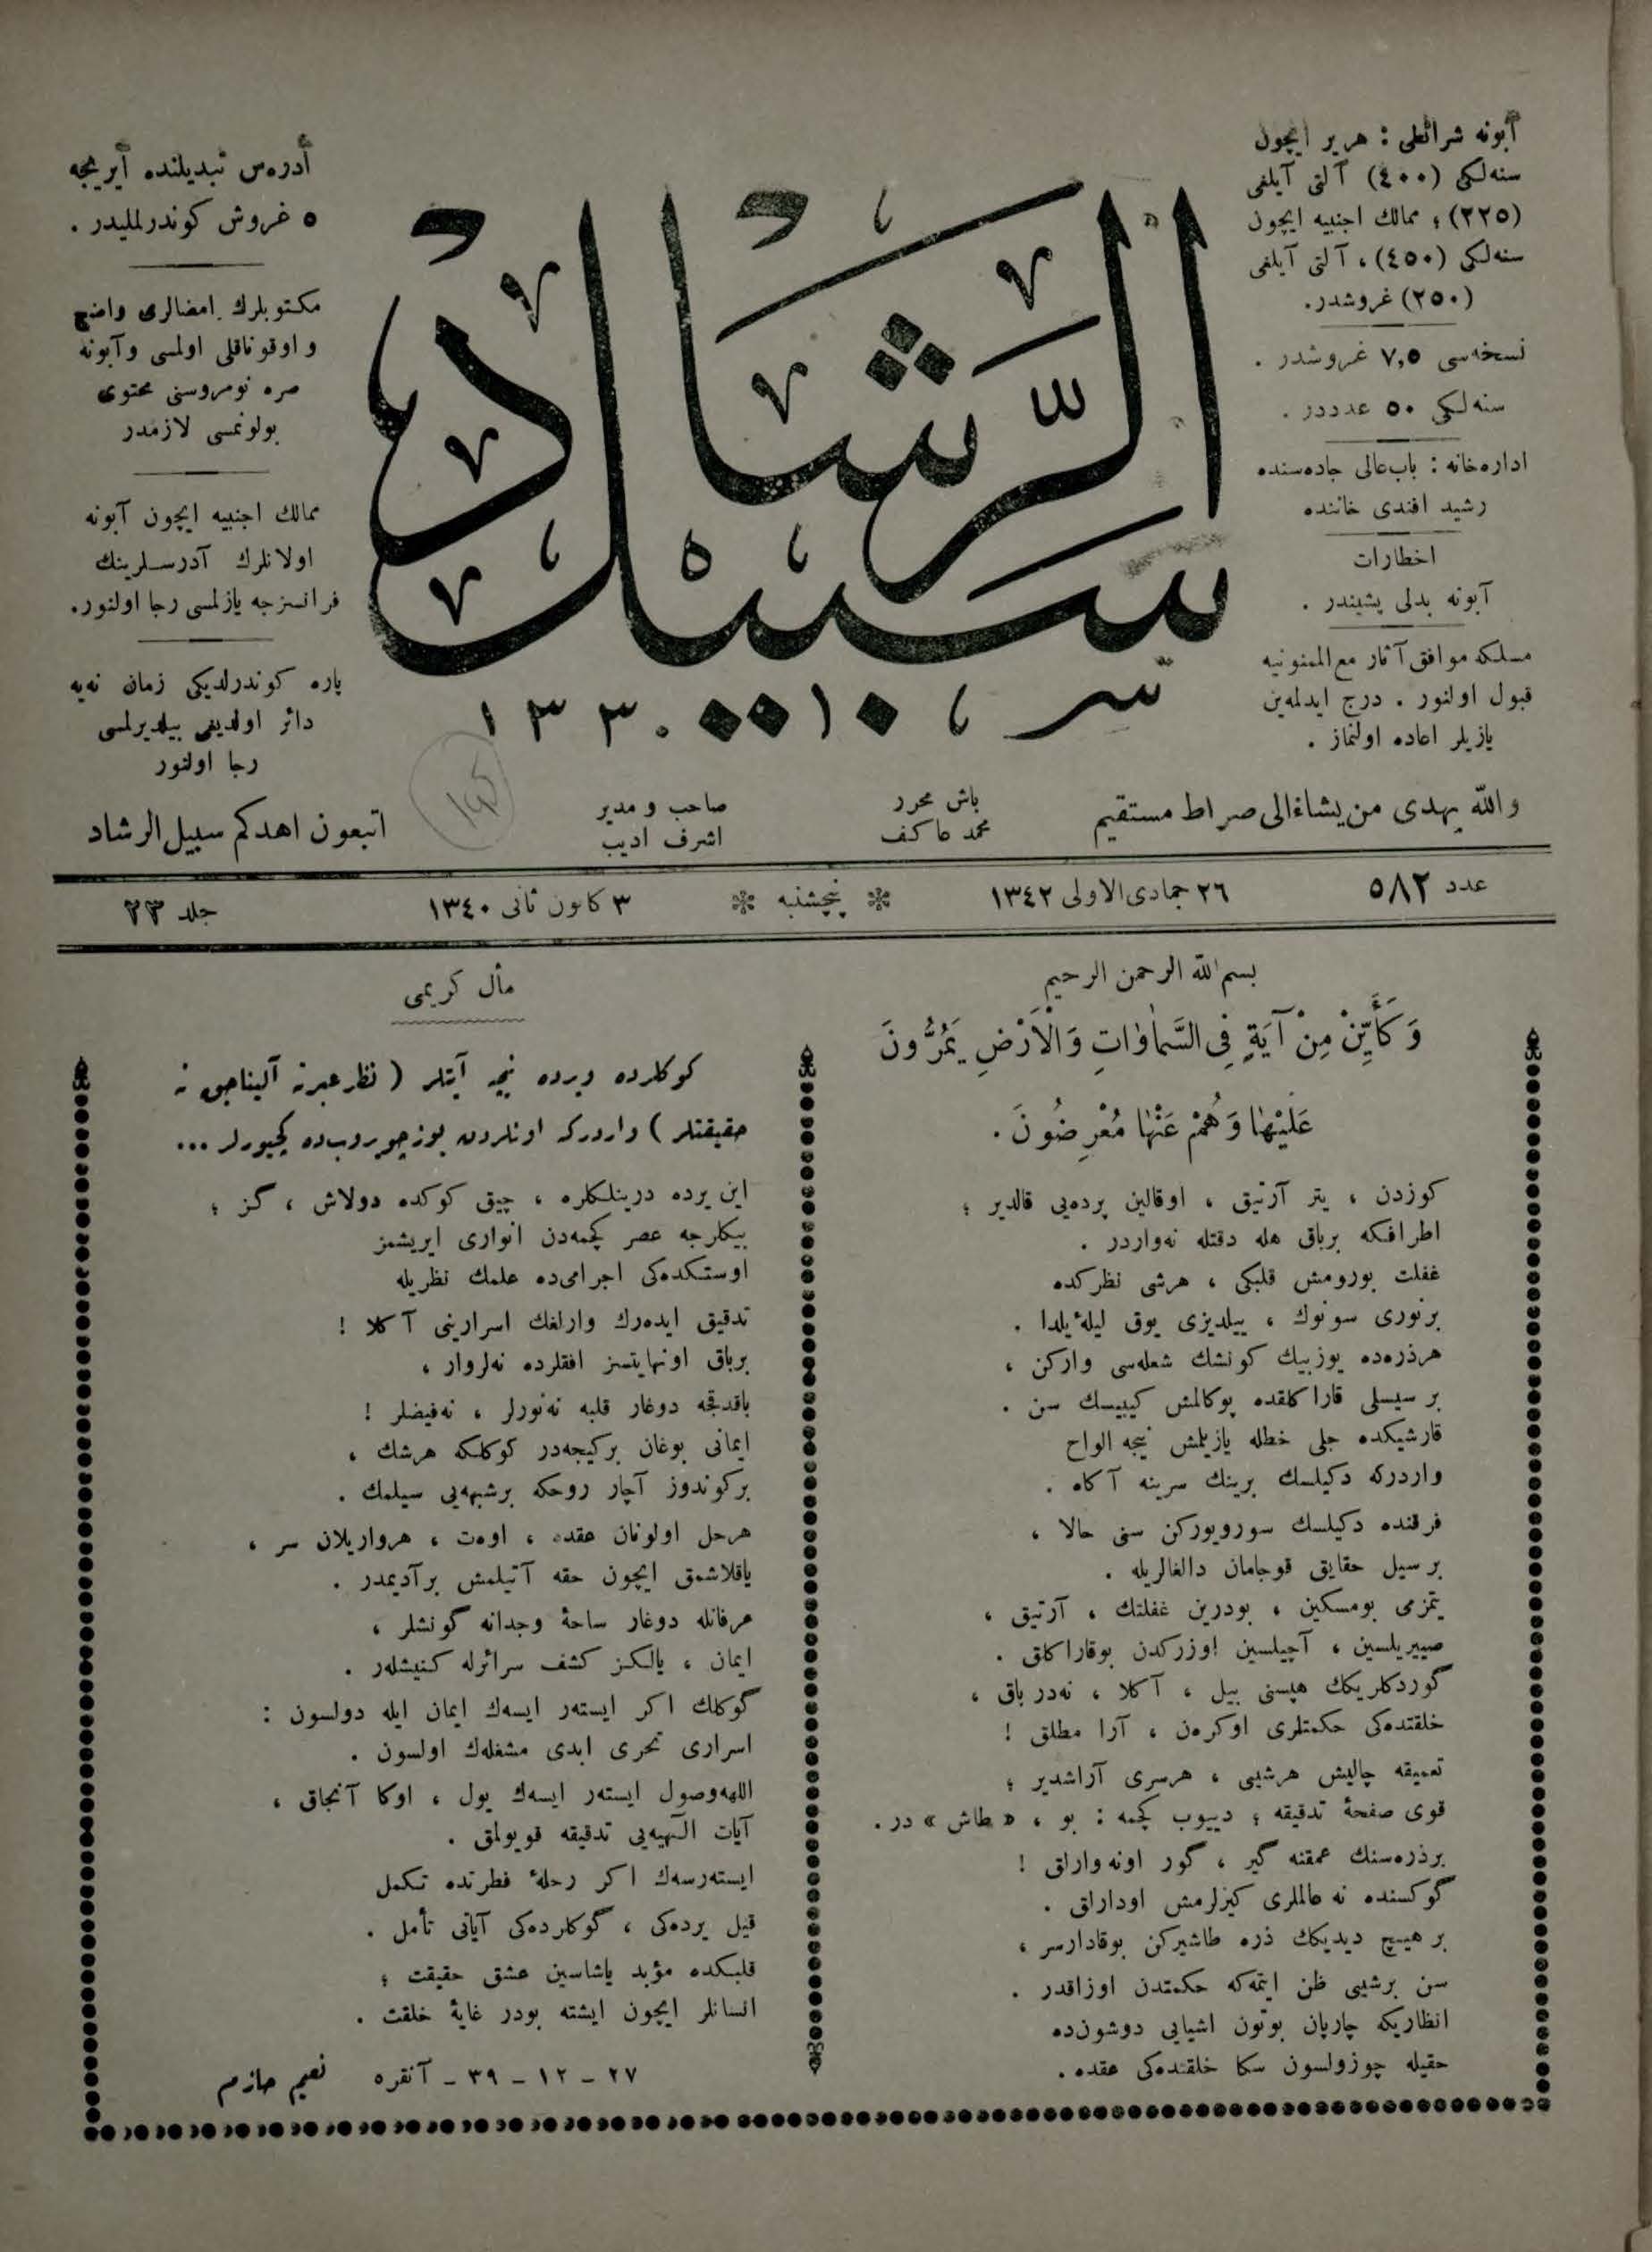 آبونه شرائطی : هر یر ایچون
سنه‌لکی (٤٠٠) آلتی آیلغی
(٢٢٥) ؛ ممالك اجنبیه ایچون
سنه‌لکی (٤٥٠)، آلتی آیلغی
(٢٥٠) غروشدر.
نسخه‌سی ٧,٥ غروشدر .
سنه‌لکی ٥٠ عدددر .
اداره‌خانه : باب‌عالی جاده‌سنده
رشید افندی خاننده
اخطارات
آبونه بدلی پشیندر .
مسلکه موافق آثار مع‌الممنونیه
قبول اولنور . درج ایدلمه‌ین
یازیلر اعاده اولنماز .
سبیل الرّشاد
١٣٣٠
آدره‌س تبدیلنده آیریجه
٥ غروش کوندرلملیدر .
مکتوبلرك امضالری واضح
و اوقوناقلی اولمسی وآبونه
صره نومروسنی محتوی
بولونمسی لازمدر
ممالك اجنبیه ایچون آبونه
اولانلرك آدرسلرینك
فرانسزجه یازلمسی رجا اولنور.
پاره کوندرلدیکی زمان نه‌یه
دائر اولدیغی بیلدیرلمسی
رجا اولنور
والله یهدی من یشاء الی صراط مستقیم
باش محرر
محمد عاکف
صاحب و مدیر
اشرف ادیب
اتبعون اهدکم سبیل الرشاد
عدد ٥٨٢
٢٦ جمادی‌الاولی ١٣٤٢
پنجشنبه
٣ کانون ثانی ١٣٤٠
جلد ٢٣
بسم الله الرحمن الرحیم
وَكَأَيِّنْ مِنْ آيَةٍ فِى السَّمٰوَاتِ وَالْاَرْضِ يَمُرُّونَ
عَلَيْهَا وَهُمْ عَنْهَا مُعْرِضُونَ .
کوزدن ، یتر آرتیق ، اوقالین پرده‌یی قالدیر ؛
اطرافکه برباق هله دقتله نه‌واردر .
غفلت بورومش قلبکی ، هرشی نظرکده
برنوری سونوك ، ییلدیزی یوق لیلۀ یلدا .
هرذره‌ده یوزبیك کونشك شعله‌سی وارکن ،
بر سیسلی قاراکلقده پوکالمش کیبیسك سن .
قارشیکده جلی خطله یازیلمش نیجه الواح
واردرکه دکیلسك برینك سرینه آکاه .
فرقنده دکیلسك سورویورکن سنی حالا ،
بر سیل حقایق قوجامان دالغالریله .
یتمزمی بومسکین ، بودرین غفلتك ، آرتیق ،
صییریلسین ، آچیلسین اوزرکدن بوقاراکلق .
گوردکلریکك هپسنی بیل ، آکلا ، نه‌در باق ،
خلقتده‌کی حکمتلری اوکره‌ن ، آرا مطلق !
تعمیقه چالیش هرشیی ، هرسری آراشدیر ؛
قوی صفحۀ تدقیقه ؛ دییوب کچمه : بو ، « طاش » در .
برذره‌سنك عمقنه گیر ، گور اونه وارلق !
گوکسنده نه عالملری کیزلرمش اودارلق .
بر هیچ دیدیکك ذره طاشیرکن بوقادارسر ،
سن برشیی ظن ایتمه‌که حکمتدن اوزاقدر .
انظاریکه چارپان بوتون اشیایی دوشون‌ده
حقیله چوزولسون سکا خلقتده‌کی عقده .
مآل کریمی
کوکلرده ویرده نیجه آیتلر ( نظر عبرته آلیناجق نه
حقیقتلر ) واردرکه اونلردن یوز چویروب‌ده کچیورلر ...
این یرده درینلکلره ، چیق کوکده دولاش ، گز ؛
بیکلرجه عصر کچمه‌دن انواری ایریشمز
اوستکده‌کی اجرامی‌ده علمك نظریله
تدقیق ایده‌رك وارلغك اسرارینی آکلا !
برباق اونهایتسز افقلرده نه‌لروار ،
باقدقجه دوغار قلبه نه‌نورلر ، نه‌فیضلر !
ایمانی بوغان برکیجه‌در کوکلکه هرشك ،
برکوندوز آچار روحکه برشبهه‌یی سیلمك .
هرحل اولونان عقده ، اوه‌ت ، هرواریلان سر ،
یاقلاشمق ایچون حقه آتیلمش برآدیمدر .
عرفانله دوغار ساحۀ وجدانه گونشلر ،
ایمان ، یالکز کشف سرائرله کنیشله‌ر .
گوکلك اکر ایسته‌ر ایسه‌ك ایمان ایله دولسون :
اسراری تحری ابدی مشغله‌ك اولسون .
اللهه‌وصول ایسته‌ر ایسه‌ك یول ، اوکا آنجاق ،
آیات الٰهیه‌یی تدقیقه قویولمق .
ایسته‌رسه‌ك اکر رحلۀ فطرتده تکمل
قیل یرده‌کی ، گوکلرده‌کی آیاتی تأمل .
قلبکده مؤبد یاشاسین عشق حقیقت ؛
انسانلر ایچون ایشته بودر غایۀ خلقت .
٢٧ - ١٢ - ٣٩ - آنقره
نعیم حازم